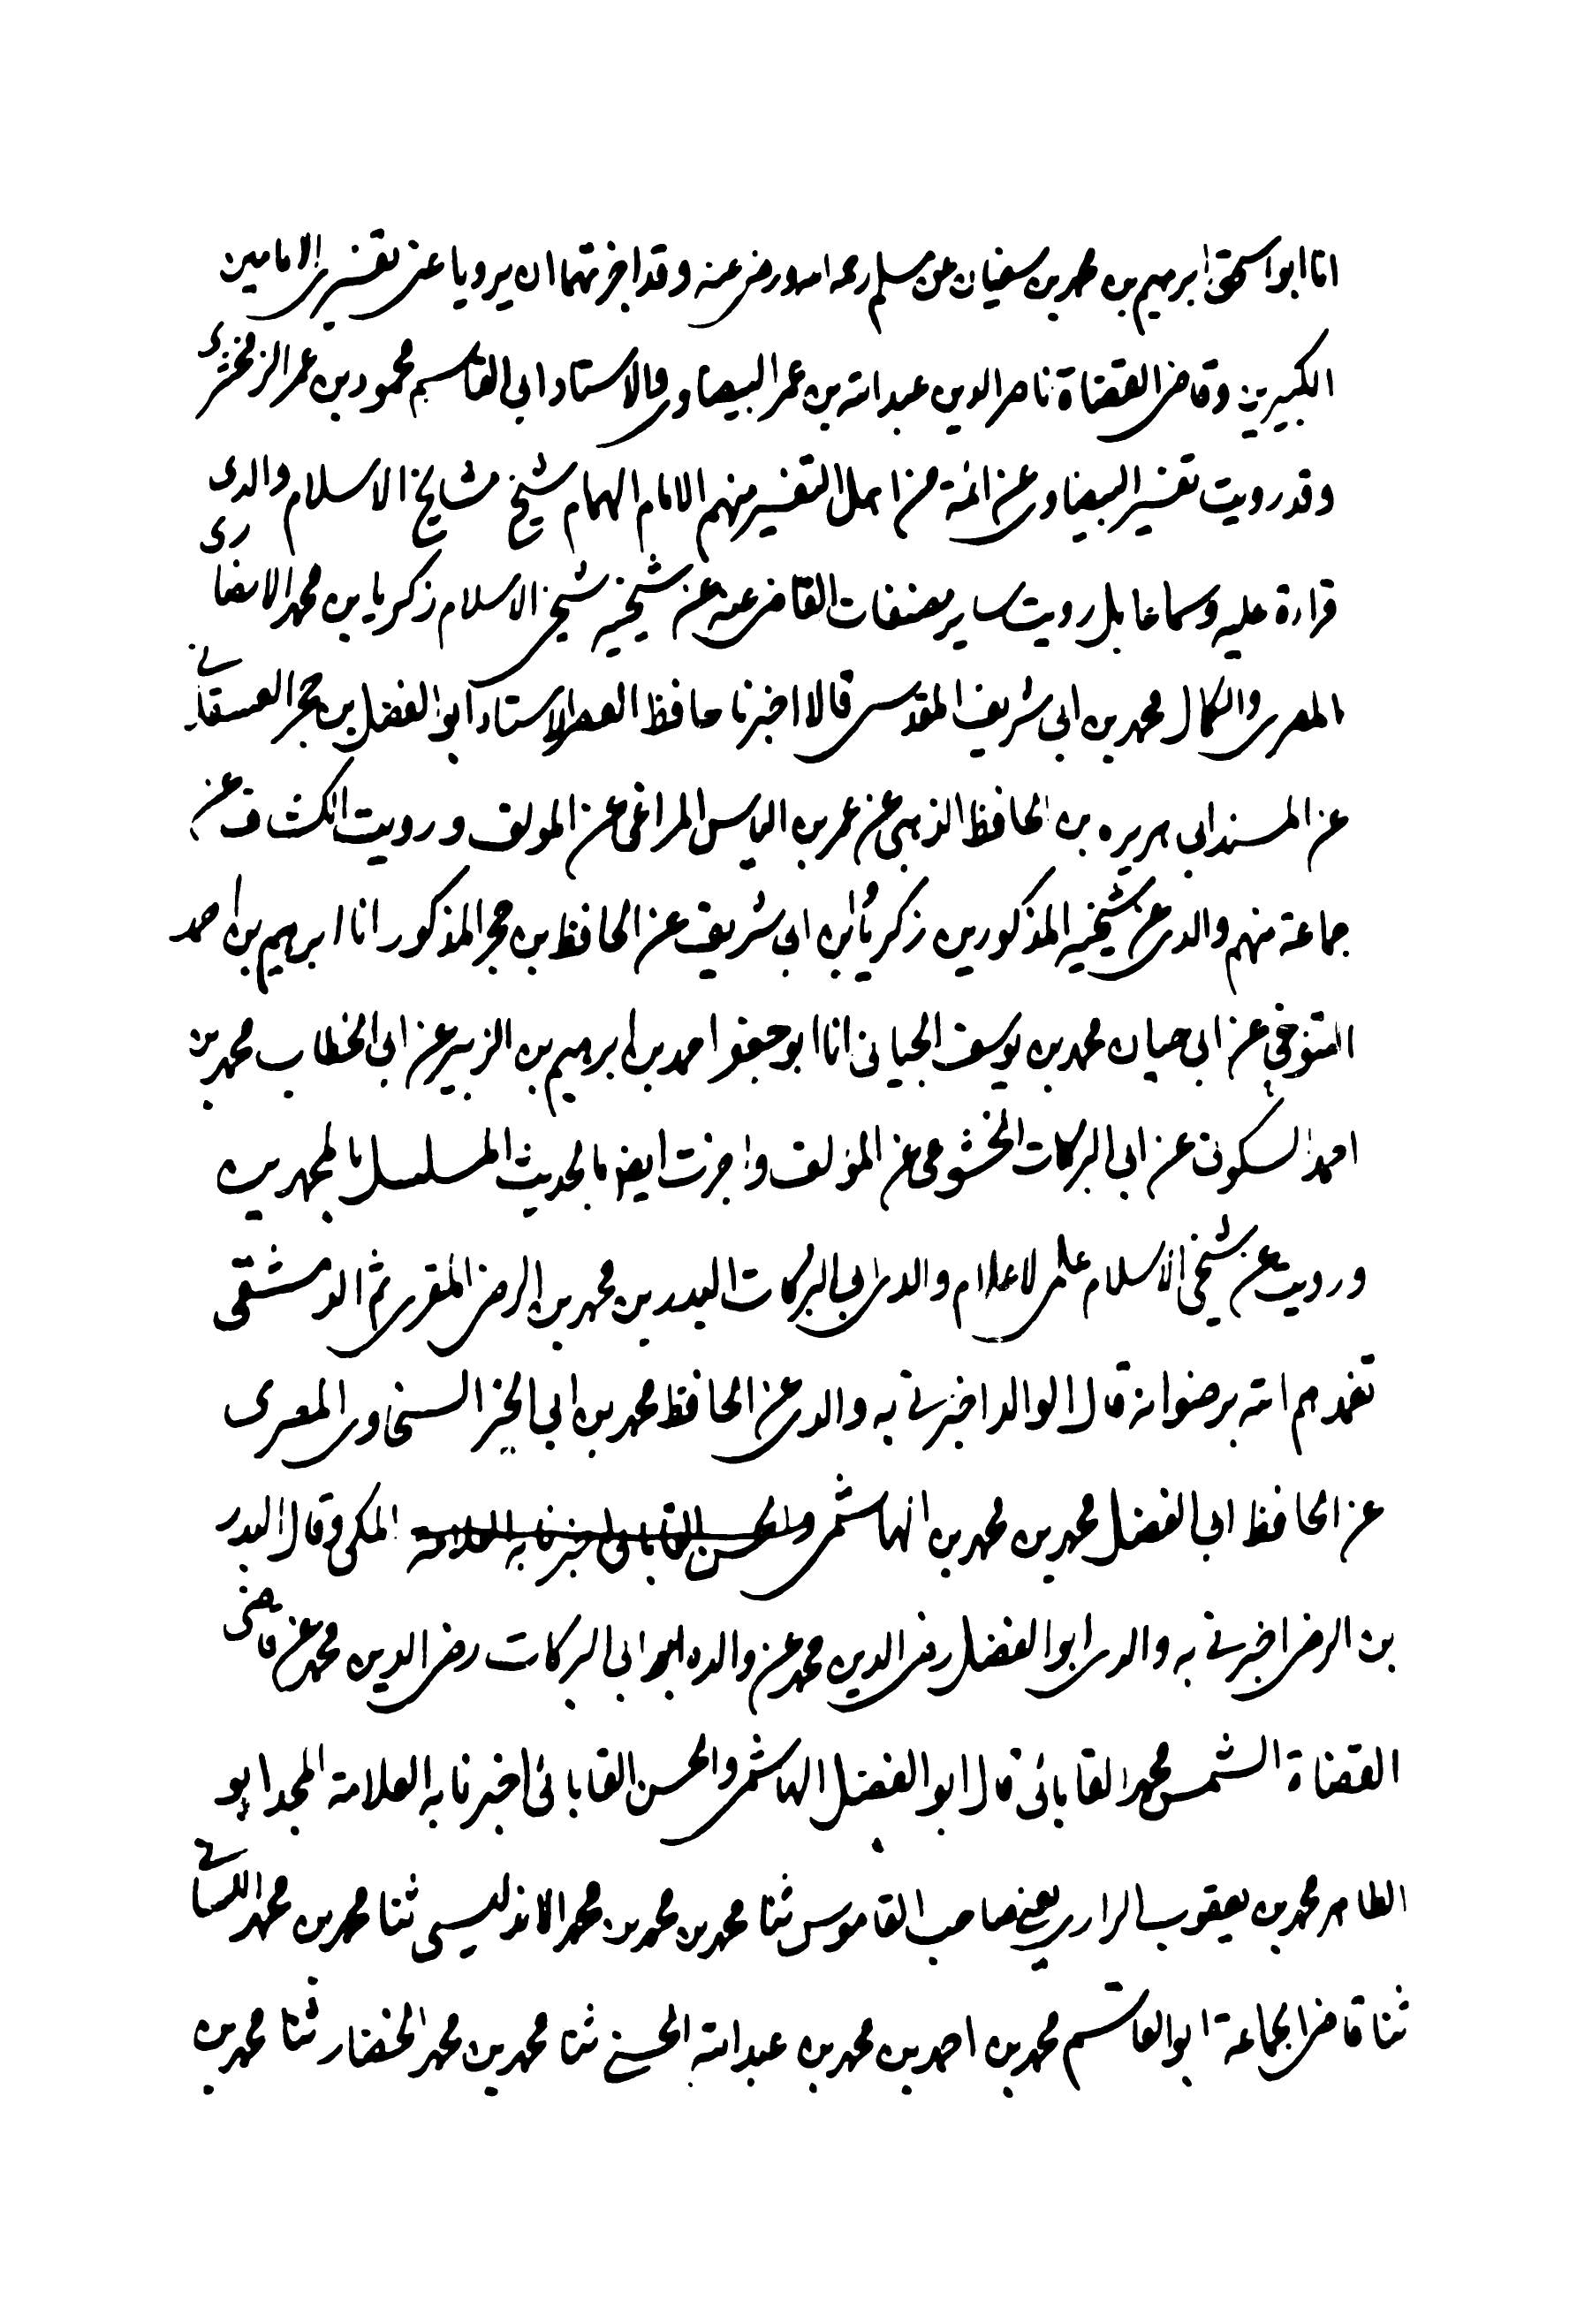 انا ابو اسحق ابرهيم بن محمد بن سفيان عن مسلم رحمه الله ورضى عنه وقد اجزتهما ان يرويا عنى تفسيرى الامامين
الكبيرين وقاضى القضاة ناصر الدين عبد الله بن عمر البيضاوى والاستاد ابى القاسم محمود بن عمر الزمخشرى
وقد رويت تفسير البيضاوى عن ائمة من اهل التفسير منهم الامام الهمام شيخ مشايخ الاسلام والدى
قراءة عليه وسماعا بل رويت ساير مصنفات القاضى عنه عن شيخيه شيخى الاسلام زكريا بن محمد الانصارى
المصرى والكمال محمد بن ابى شريف المقدسى قالا اخبرنا حافظ العصر الاستاد ابو الفضل بن حجر العسقلانى
عن المسند ابى هريره بن الحافظ الذهبى عن عمر بن الياس المراغى عن المولف ورويت الكشاف عن
جماعة منهم والدى عن شيخيه المذكورين زكريا وابن ابى شريف عن الحافظ بن حجر المذكور انا ابرهيم بن احمد
التنوخى عن ابى حيان محمد بن يوسف الجيانى انا ابو جعفر احمد بن ابرهيم بن الزبير عن ابى الخطاب محمد بن
احمد السكونى عن ابى البركات الخشوعى عن المؤلف واجزت ايضا بالحديث المسلسل بالمحمدين
ورويته عن شيخى الاسلام علمى الاعلام والدى ابى البركات البدر بن محمد بن الرضى المقرى ثم الدمشقى
تغمدهم الله برضوانه قال الوالد اخبرنى به والدى عن الحافظ محمد بن ابى الخير السخاوى المصرى
عن الحافظ ابى الفضل محمد بن محمد بن الهاشمى والحسن القاياتى اخبرنا به العلامة المكى وقال البدر
بن الرضى اخبرنى به والدى ابو الفضل رضى الدين محمد عن والده ابى البركات رضى الدين محمد عن قاضى
القضاة الشمس محمد القاياتى قال ابو الفضل الهاشمى والحسن القاياتى اخبرنا به العلامة المجد ابو
الطاهر محمد بن يعقوب الرازى يعنى صاحب القاموس ثنا محمد بن محمد بن محمد الاندليسى ثنا محمد بن محمد التلمسانى
ثنا قاضى الجماعة ابو القاسم محمد بن احمد بن محمد بن عبد الله الحسينى ثنا محمد بن محمد الحضار ثنا محمد بن